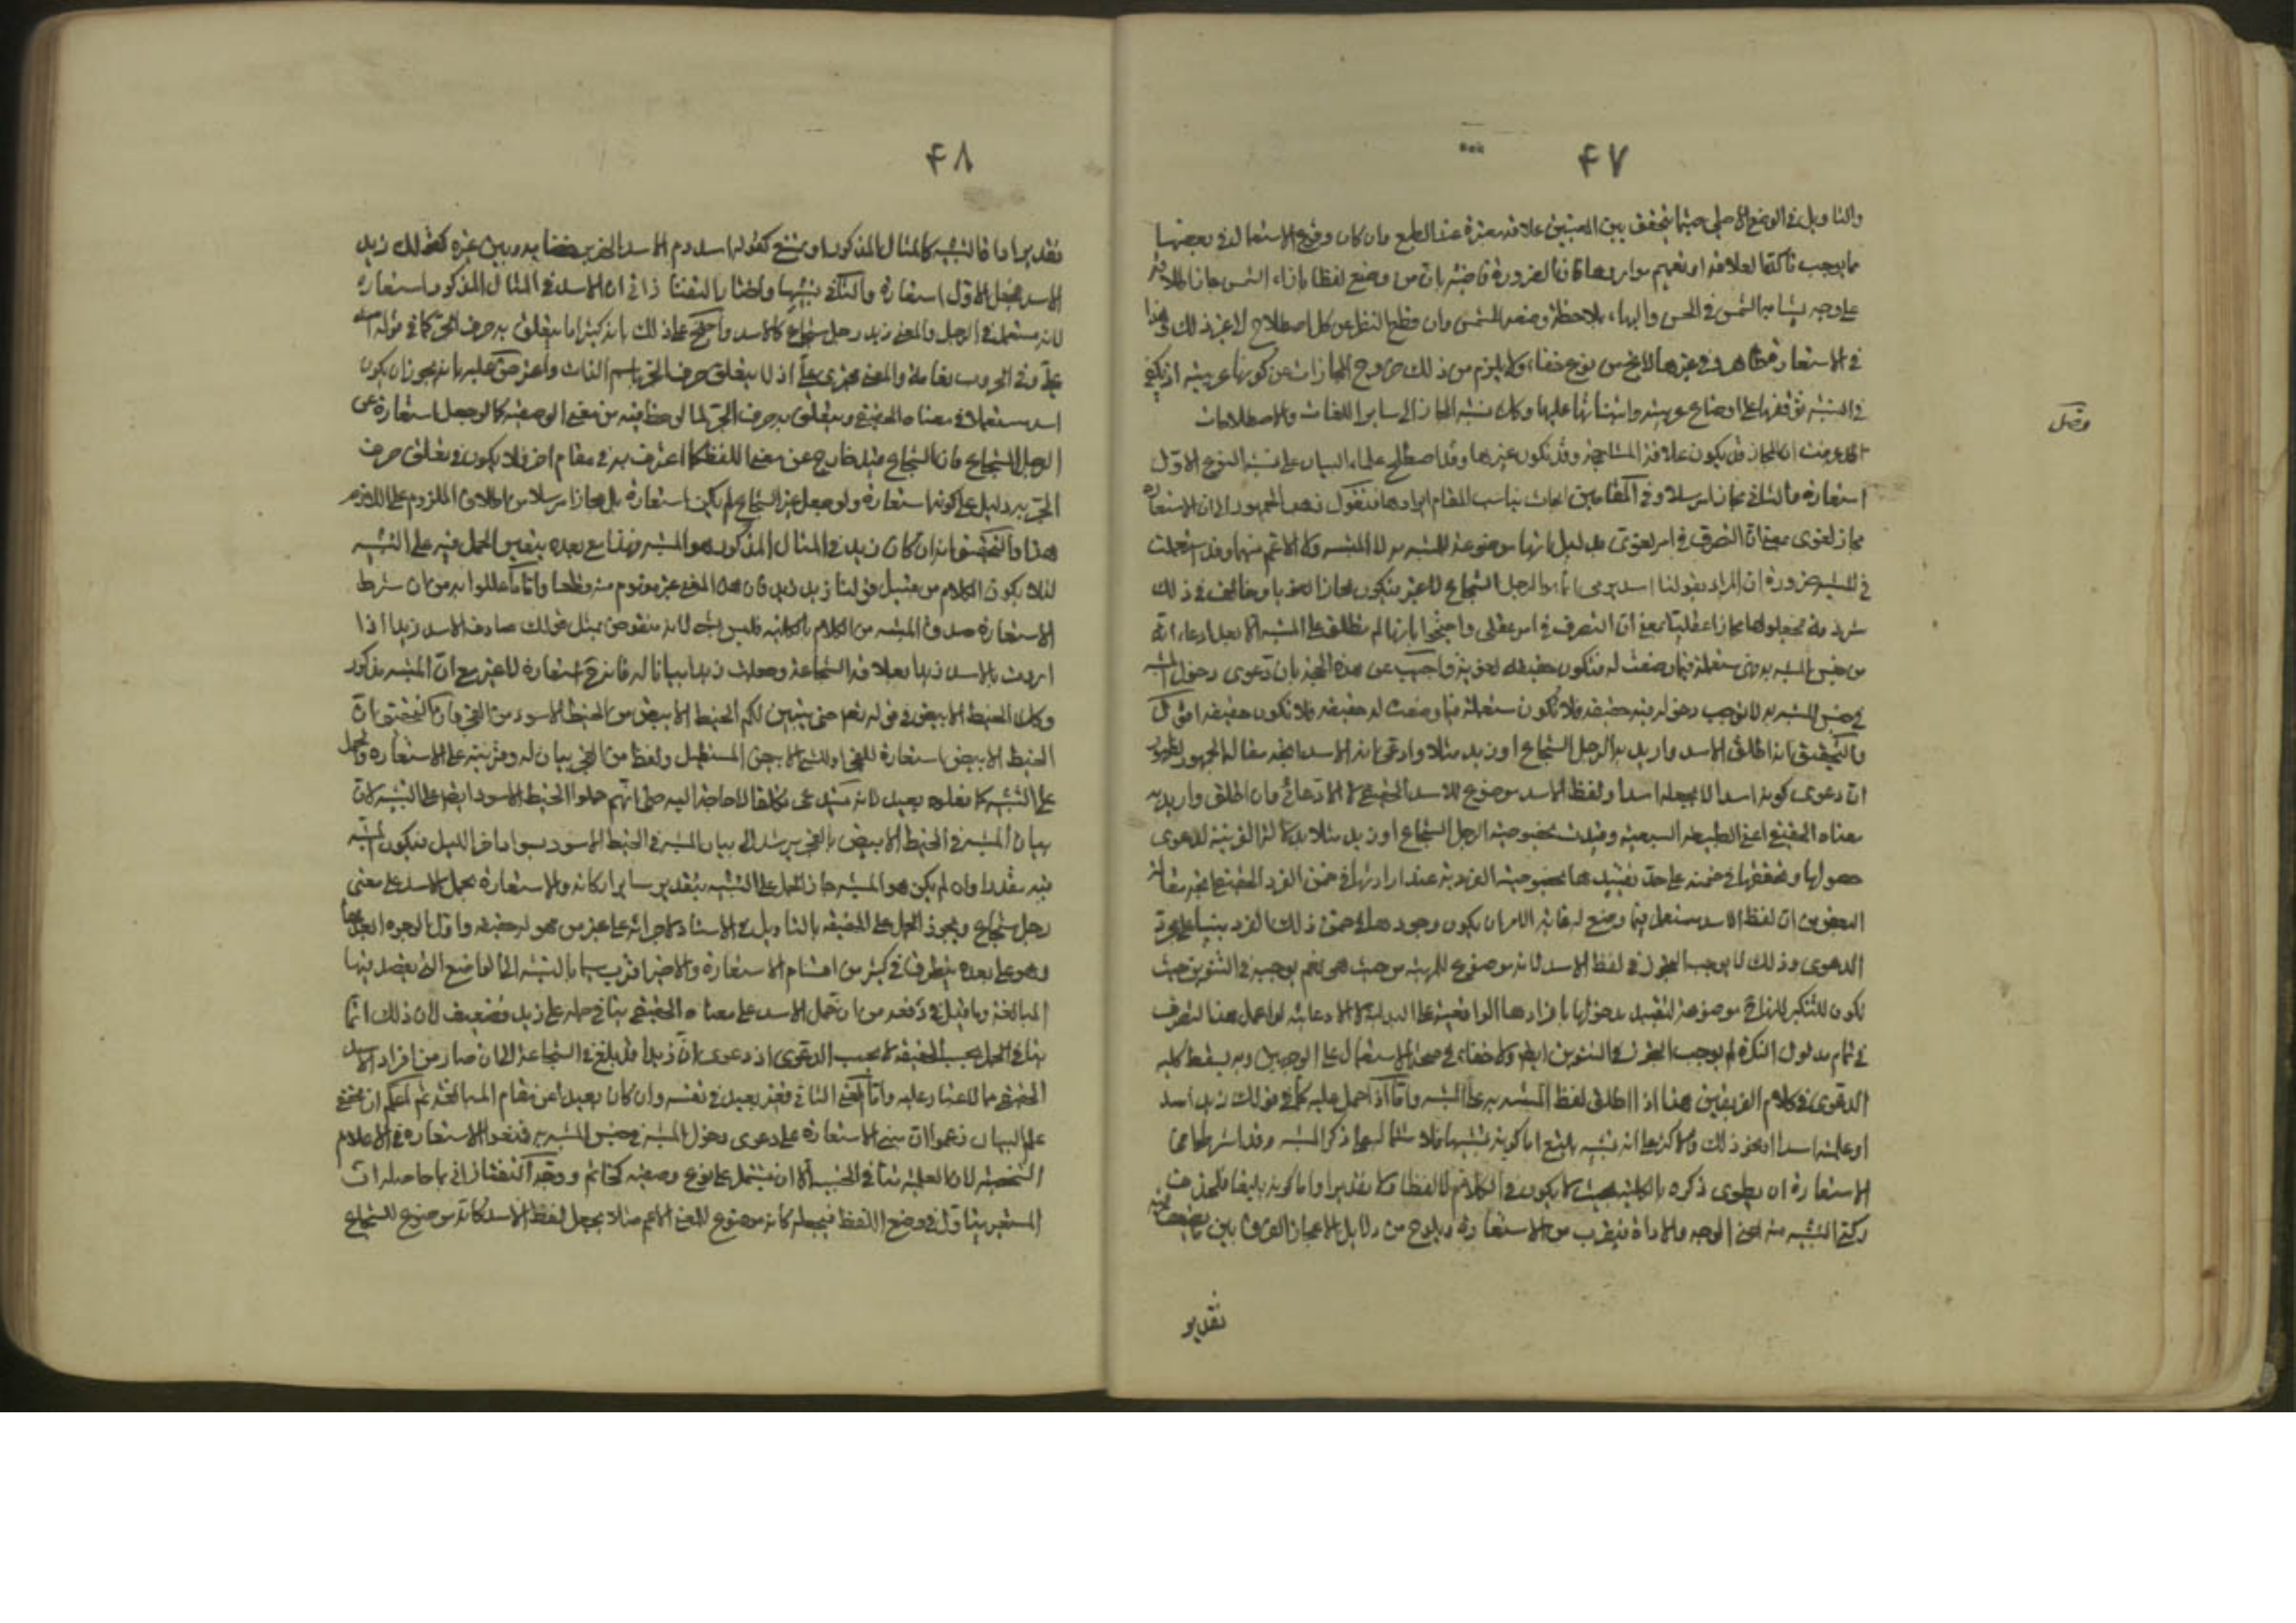 ۴۷
والتاويل في الوضع الاصلي حيثما يتحقق بين المعنيين علاقة معتبرة عند الطبع وان كان وقوع الاستعمال في بعضها
مما يوجب تأكد العلاقة او تعميم مواردها فان الضرورة قاضية بان من وضع لفظا بازاء الشمس جاز اطلاقه
على وجه يشابه الشمس في الحسن والبهاء بملاحظة وضعه للشمس وان قطع النظر عن كل اصطلاح لا غير ذلك وهذا
في الاستعارة ظاهر وفي غيرها لا يخ من نوع خفاء ولا يلزم من ذلك خروج المجازات عن كونها عربية اذ يكفي
في النسبة توقفها على اوضاع عربية وابتنائها عليها وكك نسبة المجاز الى ساير اللغات والاصطلاحات
فصل
قد عرفت ان المجاز قد يكون علاقته المشابهة وقد تكون غيرها وقد اصطلح علماء البيان على تسمية النوع الاول
استعارة والثاني مجازا مرسلا وفي المقامين ابحاث يناسب المقام ايرادها فنقول ذهب الجمهور الى ان الاستعارة
مجاز لغوي بمعنى ان التصرف في امر لغوي بدليل انها موضوعة للمشبه به لا المشبه ولا الاعم منهما وقد استعملت
في المشبه ضرورة ان المراد بقولنا اسد يرمي انما هو الرجل الشجاع لا غير فيكون مجازا لغويا وخالف في ذلك
شرذمة فجعلوها مجازا عقليا بمعنى ان التصرف في امر عقلي واحتجوا بانها لم تطلق على المشبه الا بعد ادعاء انه
من جنس المشبه به فهي مستعملة فيما وضعت له فتكون حقيقة لغوية واجيب عن هذه الحجة بان دعوى دخول المشبه
في جنس المشبه به لا توجب دخوله فيه حقيقة فلا تكون مستعملة فيما وضعت له حقيقة فلا تكون حقيقة اقول
والتحقيق انه اذا اطلق الاسد واريد به الرجل الشجاع او زيد مثلا وادعي انه الاسد اتجه مقالة الجمهور لظهور
ان دعوى كونه اسدا لا يجعله اسدا ولفظ الاسد موضوع للاسد الحقيقي لا الادعائي وان اطلق واريد به
معناه الحقيقي اعني الطبيعة السبعية وقيدت بخصوصية الرجل الشجاع او زيد مثلا بدلالة القرينة لدعوى
حصولها وتحققها في ضمنه على حد تقييدها بخصوصية الفردية عند ارادتها في ضمن الفرد الحقيقي اتجه مقالة
البعض من ان لفظ الاسد مستعمل فيما وضع له غاية الامر ان يكون وجودها في ضمن ذلك الفرد مبنيا على مجرد
الدعوى وذلك لا يوجب التجوز في لفظ الاسد لانه موضوع للمهية من حيث هي نعم يوجبه في التنوين حيث
تكون للتنكير لانها ح موضوعة لتقييد مدخولها بافرادها الواقعية على البدلية لا الادعائية لو اعمل هذا التصرف
في تمام مدلول النكرة لم يوجب التجوز في التنوين ايضا ولا خفاء في صحة الاستعمال على الوجهين وبه يسقط كلية
الدعوى في كلام الفريقين هذا اذا اطلق لفظ المشبه به على المشبه واما اذا حمل عليه كما في قولك زيد اسد
او علمته اسدا او نحو ذلك فالاكثر على انه تشبيه بليغ اما كونه تشبيها فلاشتماله على ذكر المشبه وقد اشترطوا في
الاستعارة ان يطوى ذكره بالكلية بحيث لا يكون في الكلام لا لفظا ولا تقديرا واما كونه بليغا فلحذف
ركني التشبيه منه اعني الوجه والاداة فيقرب من الاستعارة ويلوح من دلايل الاعجاز الفرق بين
تقدير
۴۸
تقديرا داة التشبيه كالمثال المذكور او يمتنع كقوله اسد دم الاسد الهزبر خضابه وبين غيره كقولك زيد
الاسد فجعل الاول استعارة والثاني تشبيها واختار التفتازاني ان الاسد في المثال المذكور استعارة
لانه مستعمل في الرجل والمعنى زيد رجل شجاع كالاسد واحتج على ذلك بانه كثيرا ما يتعلق به حرف الجر كما في قوله اسد
علي وفي الحروب نعامة والمعنى مجتري علي اذ لا يتعلق حرف الجر باسم الذات واعترض عليه بانه يجوز ان يكون
اسد مستعملا في معناه الحقيقي ويتعلق به حرف الجر لما لوحظ فيه من معنى الوصفية كما لو جعل استعارة عن
الرجل الشجاع فان الشجاع قيد خارج عن معنى اللفظ كما اعترف به في مقام اخر فلا يكون في تعلق حرف
الجر به دليل على كونه استعارة ولو جعل عين الشجاع لم يكن استعارة بل مجازا مرسلا من اطلاق الملزوم على اللازم
هذا والتحقيق انه ان كان زيد في المثال المذكور هو المشبه فهذا مع بعده يتعين الحمل فيه على التشبيه
لئلا يكون الكلام من قبيل قولنا زيد زيد فان هذا المعنى غير مفهوم منه قطعا واما ما عللوا به من ان شرط
الاستعارة حذف المشبه من الكلام بالكلية فليس بشيء لانه منقوض بمثل قولك صادف الاسد زيدا اذا
اردت بالاسد زيدا بعلاقة الشجاعة وجعلت زيدا بيانا له فانه ح استعارة لا غير مع ان المشبه مذكور
وكك الخيط الابيض في قوله تعم حتى يتبين لكم الخيط الابيض من الخيط الاسود من الفجر فان التحقيق ان
الخيط الابيض استعارة للفجر او للشيء الابيض المستطيل ولفظ من الفجر بيان له وقرينة على الاستعارة والحمل
على التشبيه كما فعلوه بعيد لانه يستدعي تكلفا لا حاجة اليه حتى انهم حملوا الخيط الاسود ايضا على التشبيه لان
بيان المشبه في الخيط الابيض بالفجر يرشد الى بيان المشبه في الخيط الاسود بسواد اخر الليل فيكون المشبه
فيه مقدرا وان لم يكن هو المشبه جاز الحمل على التشبيه بتقدير ساير اركانه والاستعارة بحمل الاسد على معنى
رجل شجاع ويجوز الحمل على الحقيقة بالتاويل في الاسناد كاجرائه على غير من هو له حقيقة واول الوجوه ابعدها
وهو على بعده يتطرق في كثير من اقسام الاستعارة والاخير اقرب سيما بالنسبة الى المواضع التي يقصد فيها
المبالغة وما قيل في دفعه من ان حمل الاسد على معناه الحقيقي ينافي حمله على زيد فضعيف لان ذلك انما
ينافي الحمل بحسب الحقيقة لا بحسب الدعوى اذ دعوى ان زيدا قد بلغ في الشجاعة الى ان صار من افراد الاسد
الحقيقي مما لا غبار عليه واما المعنى الثاني فغير بعيد في نفسه وان كان بعيدا عن مقام المبالغة ثم اعلم ان محققي
علم البيان زعموا ان مبنى الاستعارة على دعوى دخول المشبه في جنس المشبه به فمنعوا الاستعارة في الاعلام
الشخصية لان العلمية تنافي الجنسية الا ان يشتمل على نوع وصفية كحاتم ووجه التفتازاني بما حاصله ان
المستعير يتاول في وضع اللفظ فيجعله كانه موضوع للمعنى الاعم مثلا يجعل لفظ الاسد كانه موضوع للشجاع